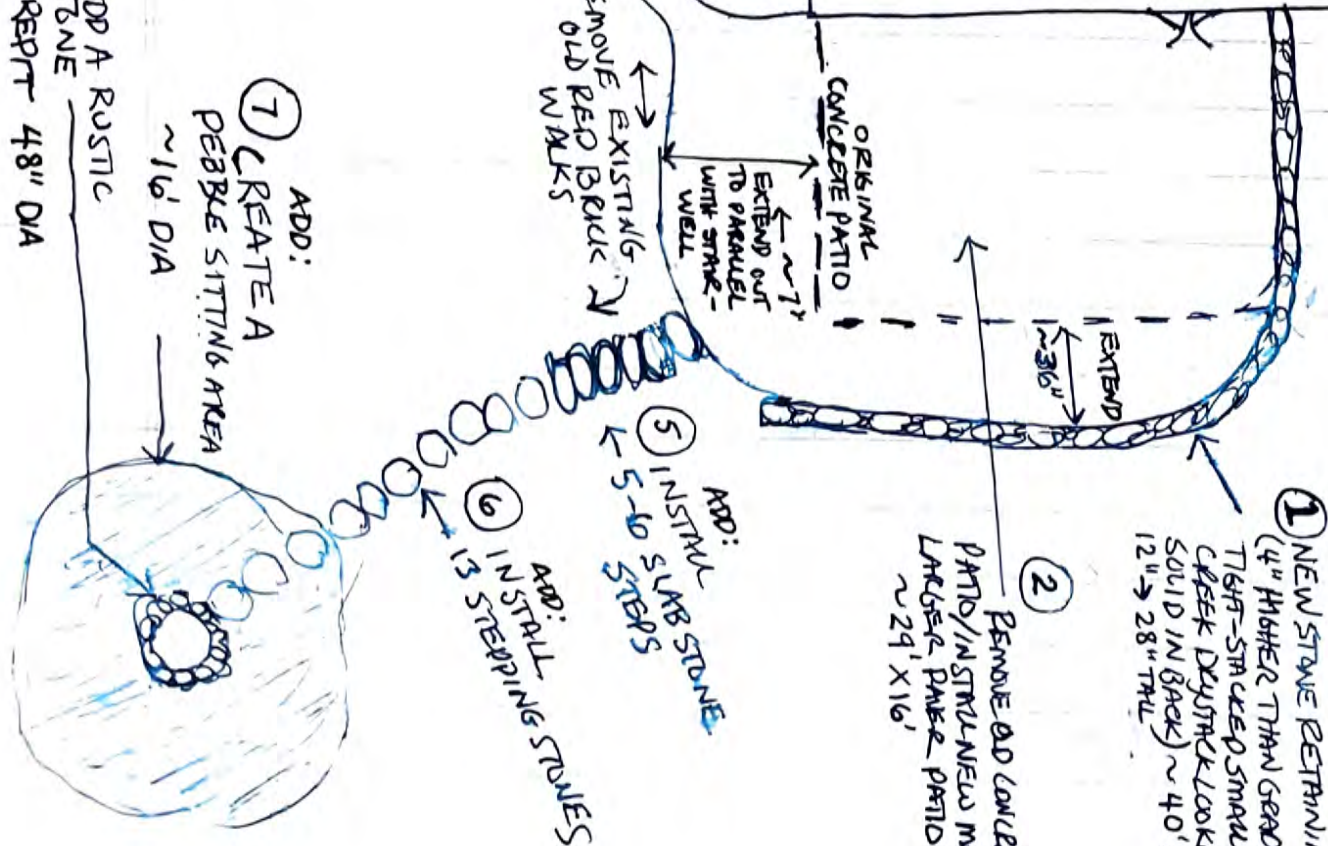 ① NEW STONE RETAINI
(4" HIGHER THAN GRAD
TIGHT-STACKED SMALL
CREEK DRYSTACK LOOK
SOLID IN BACK) ~ 40'
12" → 28" TALL
②
REMOVE OLD CONCR
PATIO/INSTALL NEW M
LARGER PAVER PATIO
~29' X 16'
EXTEND
~36"
ORIGINAL
CONCRETE PATIO
← ~7'
EXTEND OUT
TO PARALLEL
WITH STAIR-
WELL
EMOVE EXISTING
OLD RED BRICK
WALKS
ADD:
⑤ INSTALL
5-6 SLAB STONE
STEPS
ADD:
⑥ INSTALL
13 STEPPING STONES
ADD:
⑦ CREATE A
PEBBLE SITTING AREA
~16' DIA
DD A RUSTIC
ONE
REPIT 48" DIA